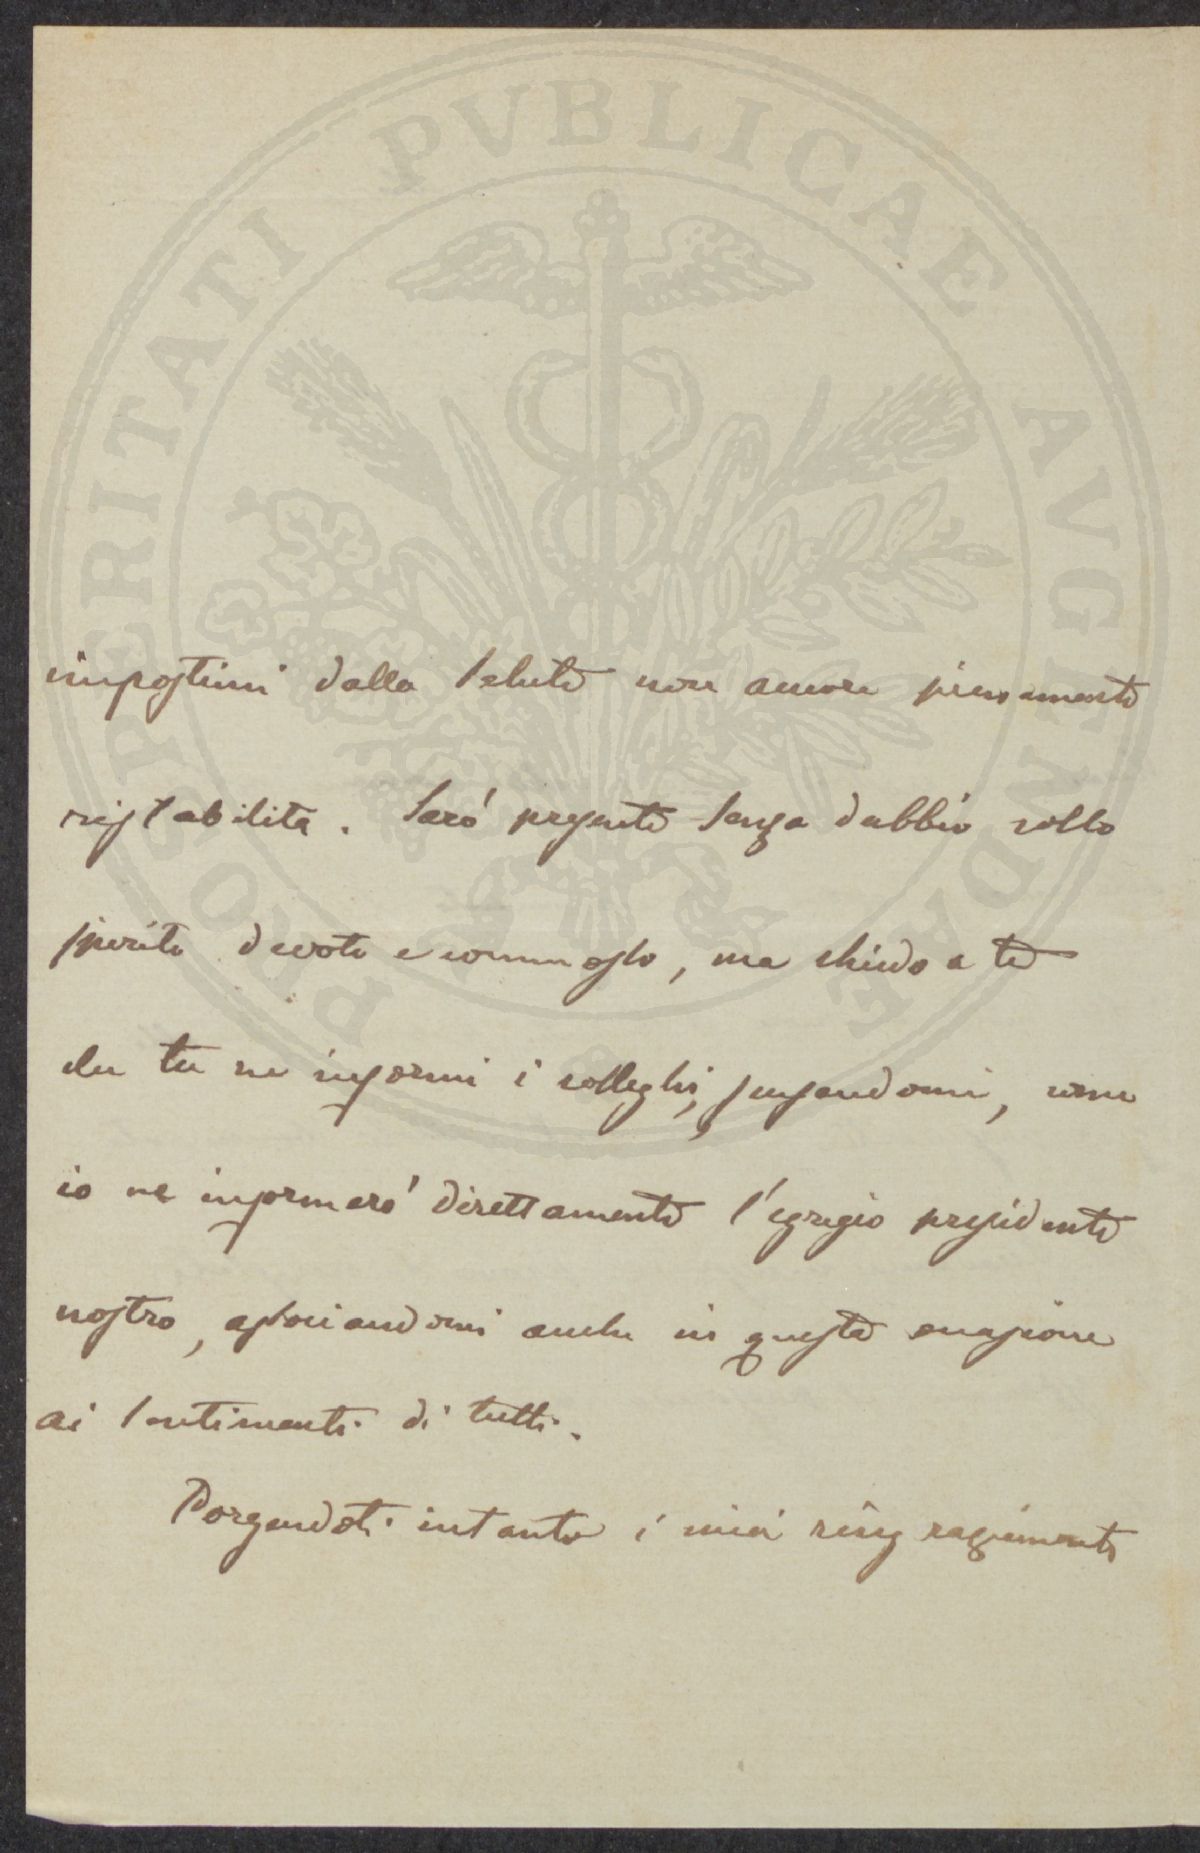 PROSPERITATI PVBLICAE AVGENDAE
impostimi dalla salute non ancora pienamente
ristabilita. Sarò presente senza dubbio collo
spirito devoto e commosso, ma chiedo a te
che tu ne informi i colleghi, scusandomi, come
io ne informerò direttamente l'egregio presidente
nostro, associandomi anche in questa occasione
ai sentimenti di tutti.
Porgendoti intanto i miei ringraziamenti